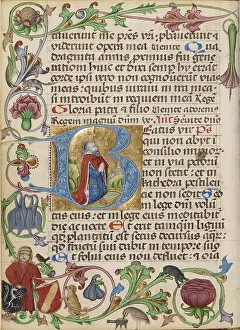 tauerunt me pres vri; pbauerunt z
viderunt opera mea Venite Qua
draginta annis primus fui gene
rationi huic et dixi semp hi errant
corde ipsi vero non cognouerunt vias
meas: quibus iuraui in ira mea
si introibit in requiem mea
Gloria patri z filio venite adorem
Regem magnu dnm Ant Seruite dno
B eatus vir Ps
qui non abit i
consilio impior
et in via petor
non stetit: et in
kathedra pestilen
cie non sedit
in lege dni volu
tas eius: et in lege eius meditabit
die ac nocte Et erit tamqm lignu
qd plantatu est secus decursus aqr:
qd fructu suu dabit in tempore suo
Et foliu eius non defluet: z oia